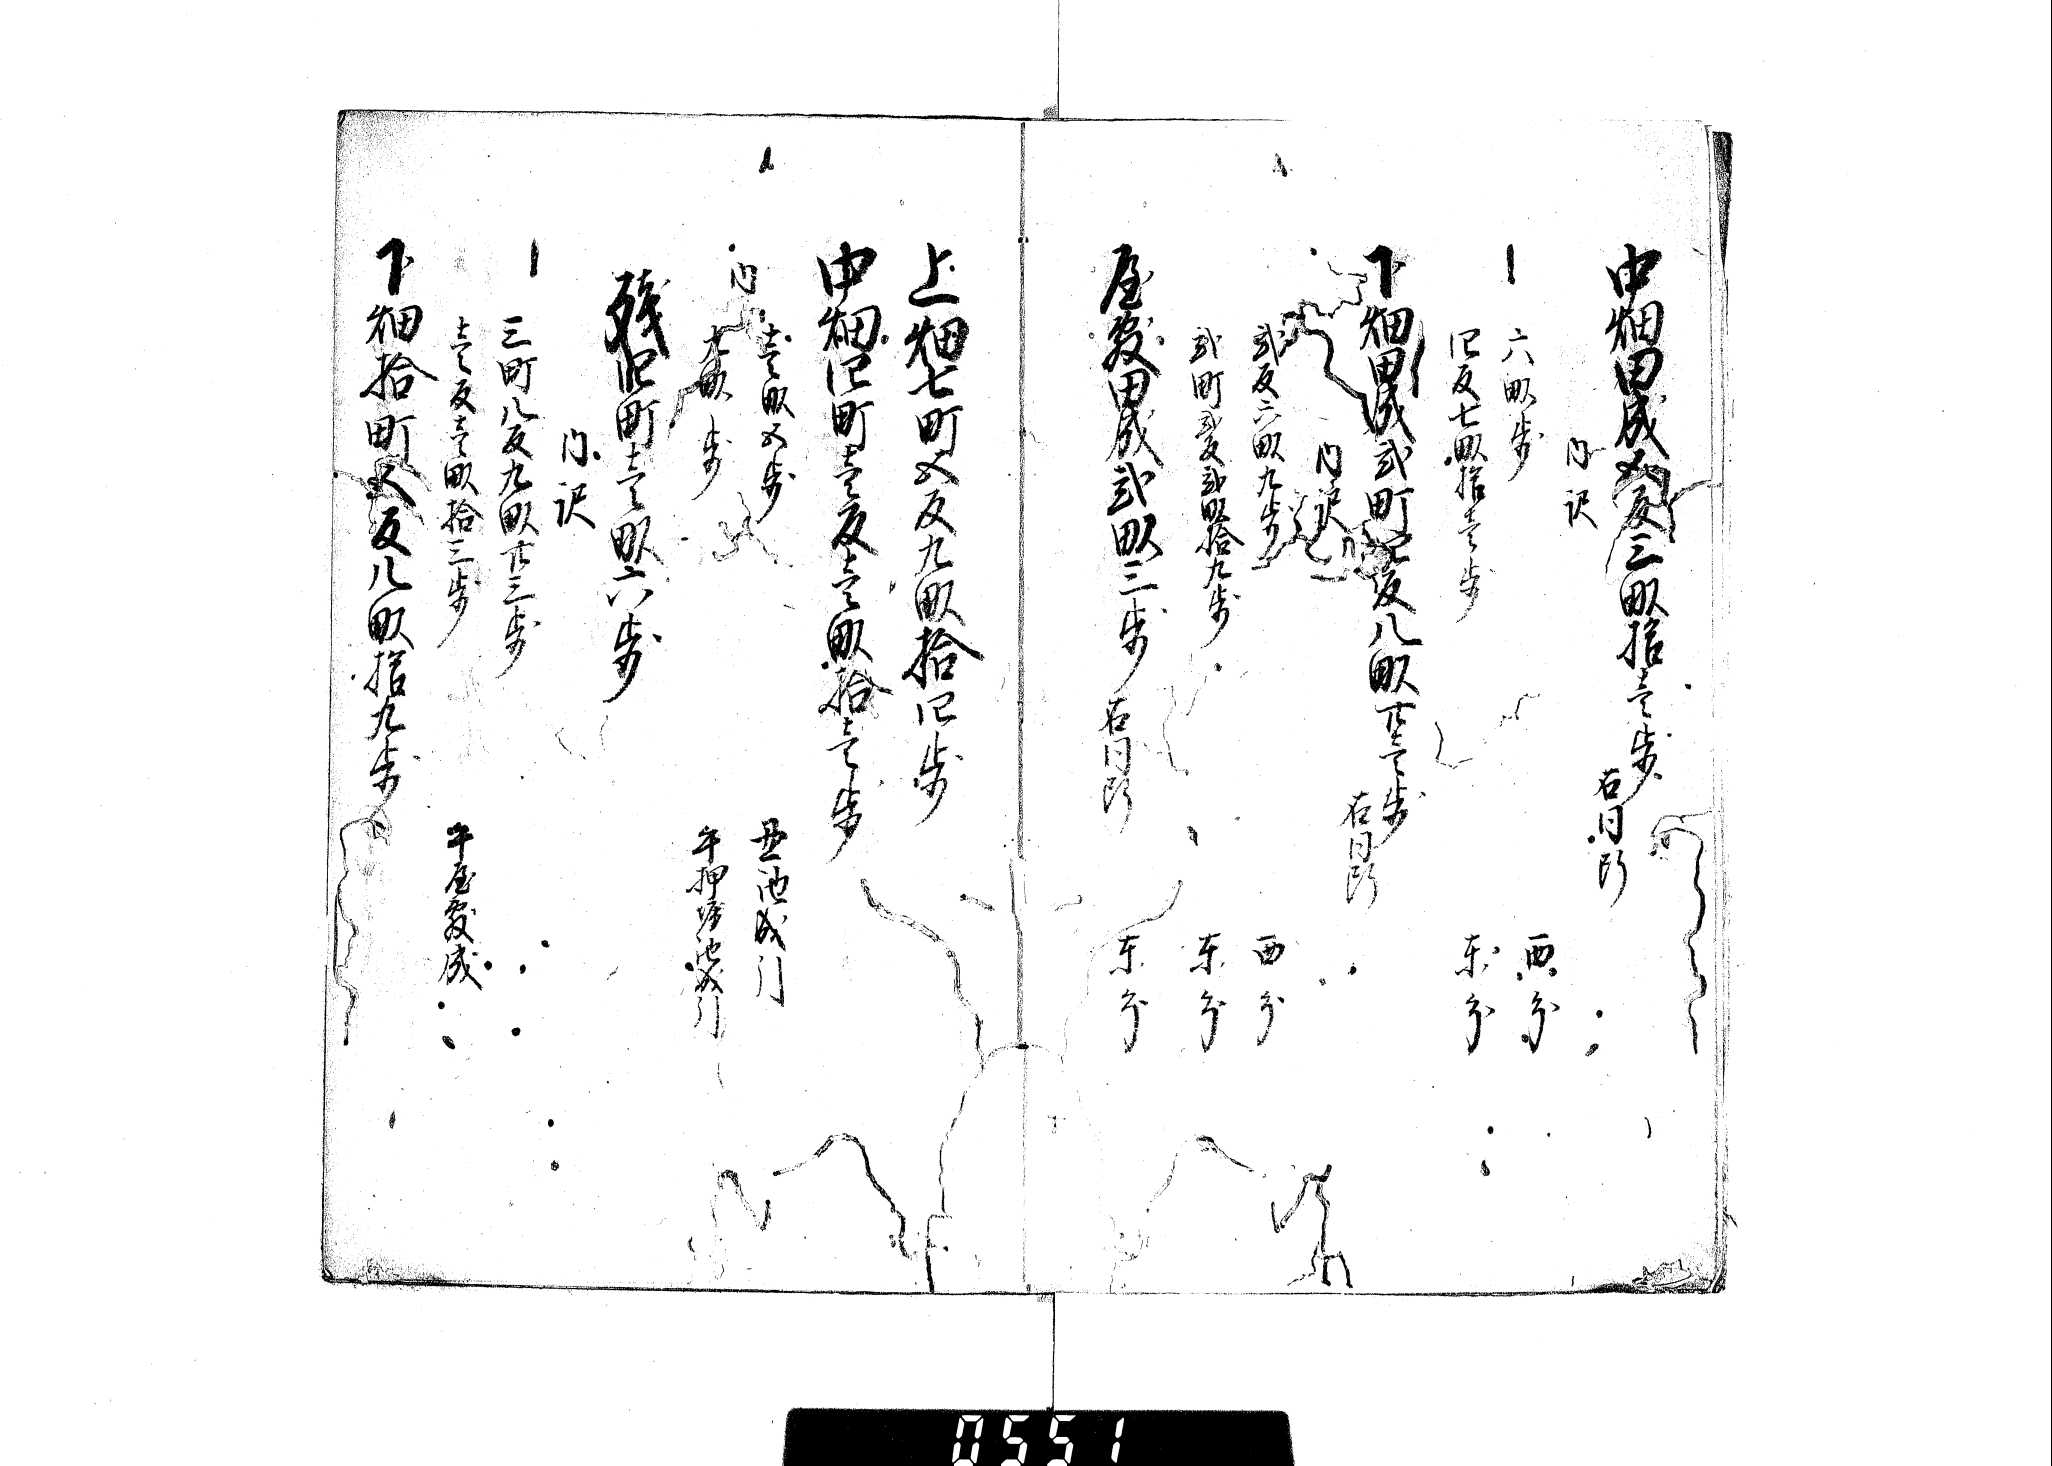 中畑田成五反三畝拾壱歩 右同断
内訳
六畝歩 西分
四反七畝拾壱歩 東分
下畑田成弐町反八畝廿壱歩 右同断
内訳
弐反六畝九歩 西分
弐町弐反弐畝拾九歩 東分
屋敷田成弐畝三歩 右同断 東分
上畑七町五反九畝拾四歩
中畑四町壱反壱畝拾壱歩
内 壱畝五歩 丑池成引
九畝歩 午押堀池成引
残四町壱畝六歩
内訳
三町八反九畝廿三歩
壱反壱畝拾三歩 午屋敷成
下畑拾町五反八畝拾九歩
0551